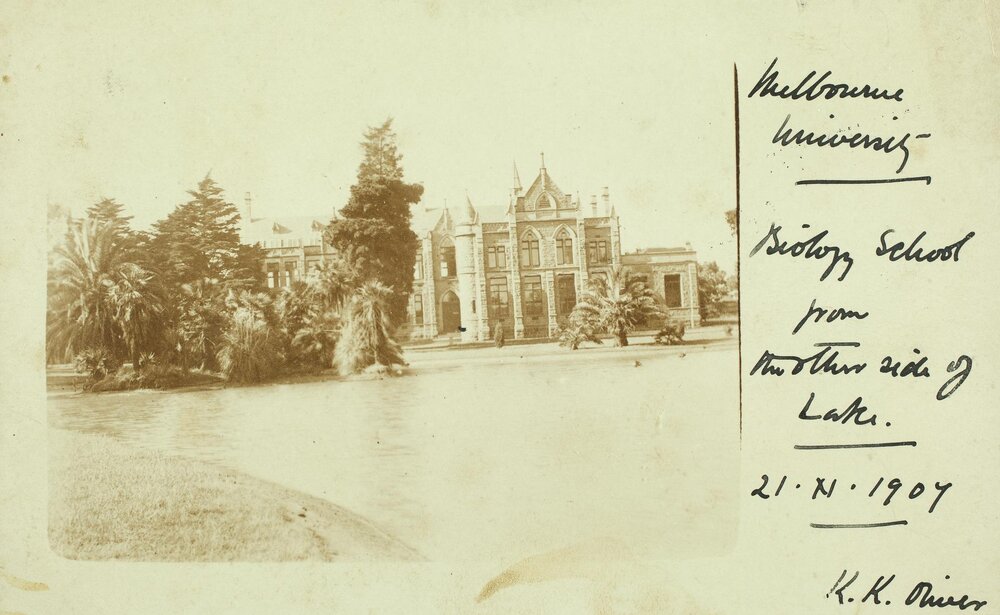 Melbourne
University
Biology School
from
the other side of
Lake.
21.XI.1907
K.K. Oliver